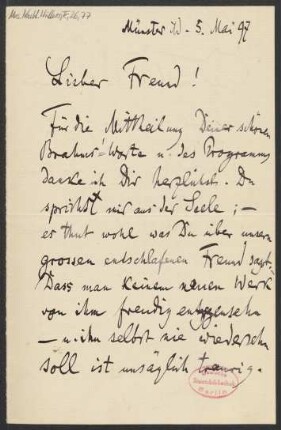 Münster i/W - 5. Mai 97
Lieber Freund!
Für die Mittheilung Deiner schönen
Brahms-Worte u. das Programm
danke ich Dir herzlichst. Du
sprichst mir aus der Seele; —
es thut wohl was Du über unsern
grossen entschlafenen Freund sagst.
Dass man keinem neuen Werk
von ihm freudig entgegensehn
— u. ihn selbst nie wiedersehn
soll ist unsäglich traurig.
Berlin